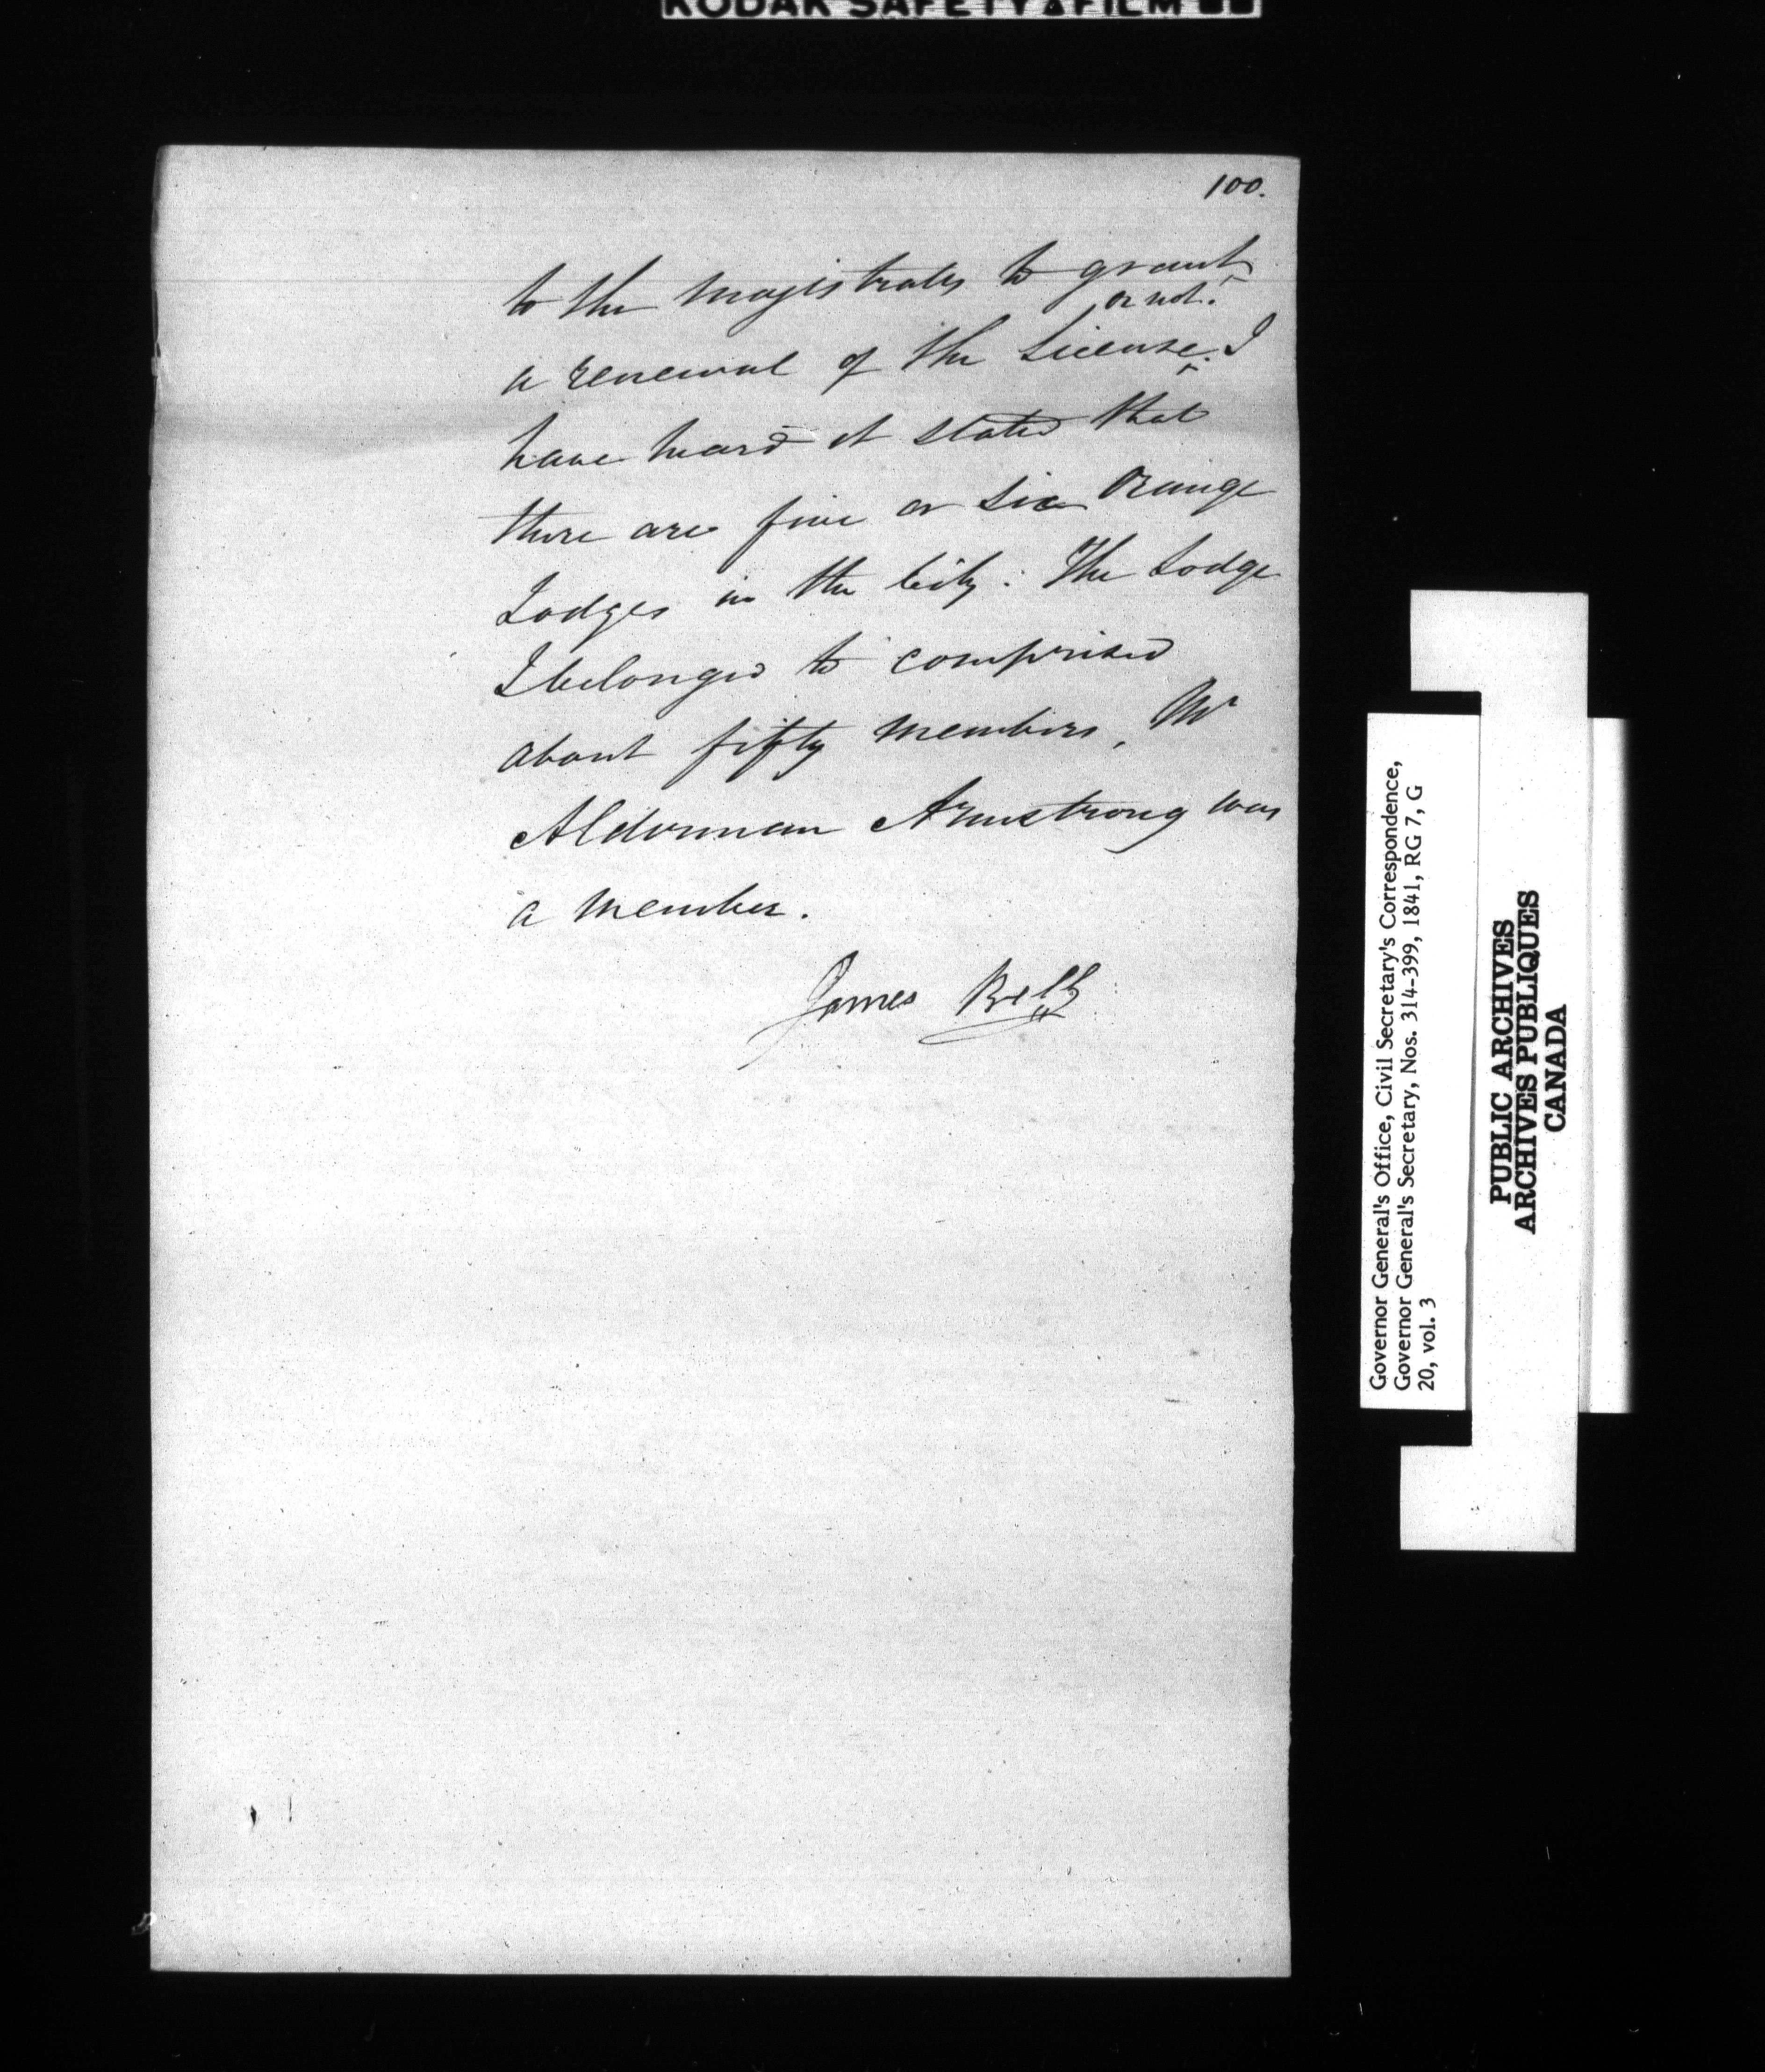 KODAK SAFETY FILM
100.
to the Magistrates to grant
or not.
a renewal of the License. I
have heard it stated that
there are five or six Orange
Lodges in the City. The Lodge
I belonged to comprised
about fifty members, Mr
Alderman Armstrong was
a member.
James Bell
Governor General's Office, Civil Secretary's Correspondence,
Governor General's Secretary, Nos. 314-399, 1841, RG 7, G
20, vol. 3
PUBLIC ARCHIVES
ARCHIVES PUBLIQUES
CANADA